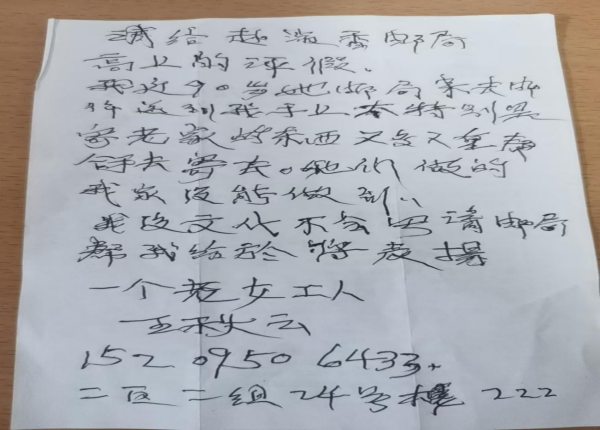 请给赵淑香邮局
高上的评假、
我近90岁她邮局来去邮
件送到我手上春特别是
寄老家好东西又多又重都
合手夫寄去。她们做的
我家没能做到、
我没文化不会写请邮局
帮我给於赞表揚
一个老女工人
王秋云
152 0950 6433、
二区二组24号楼 222